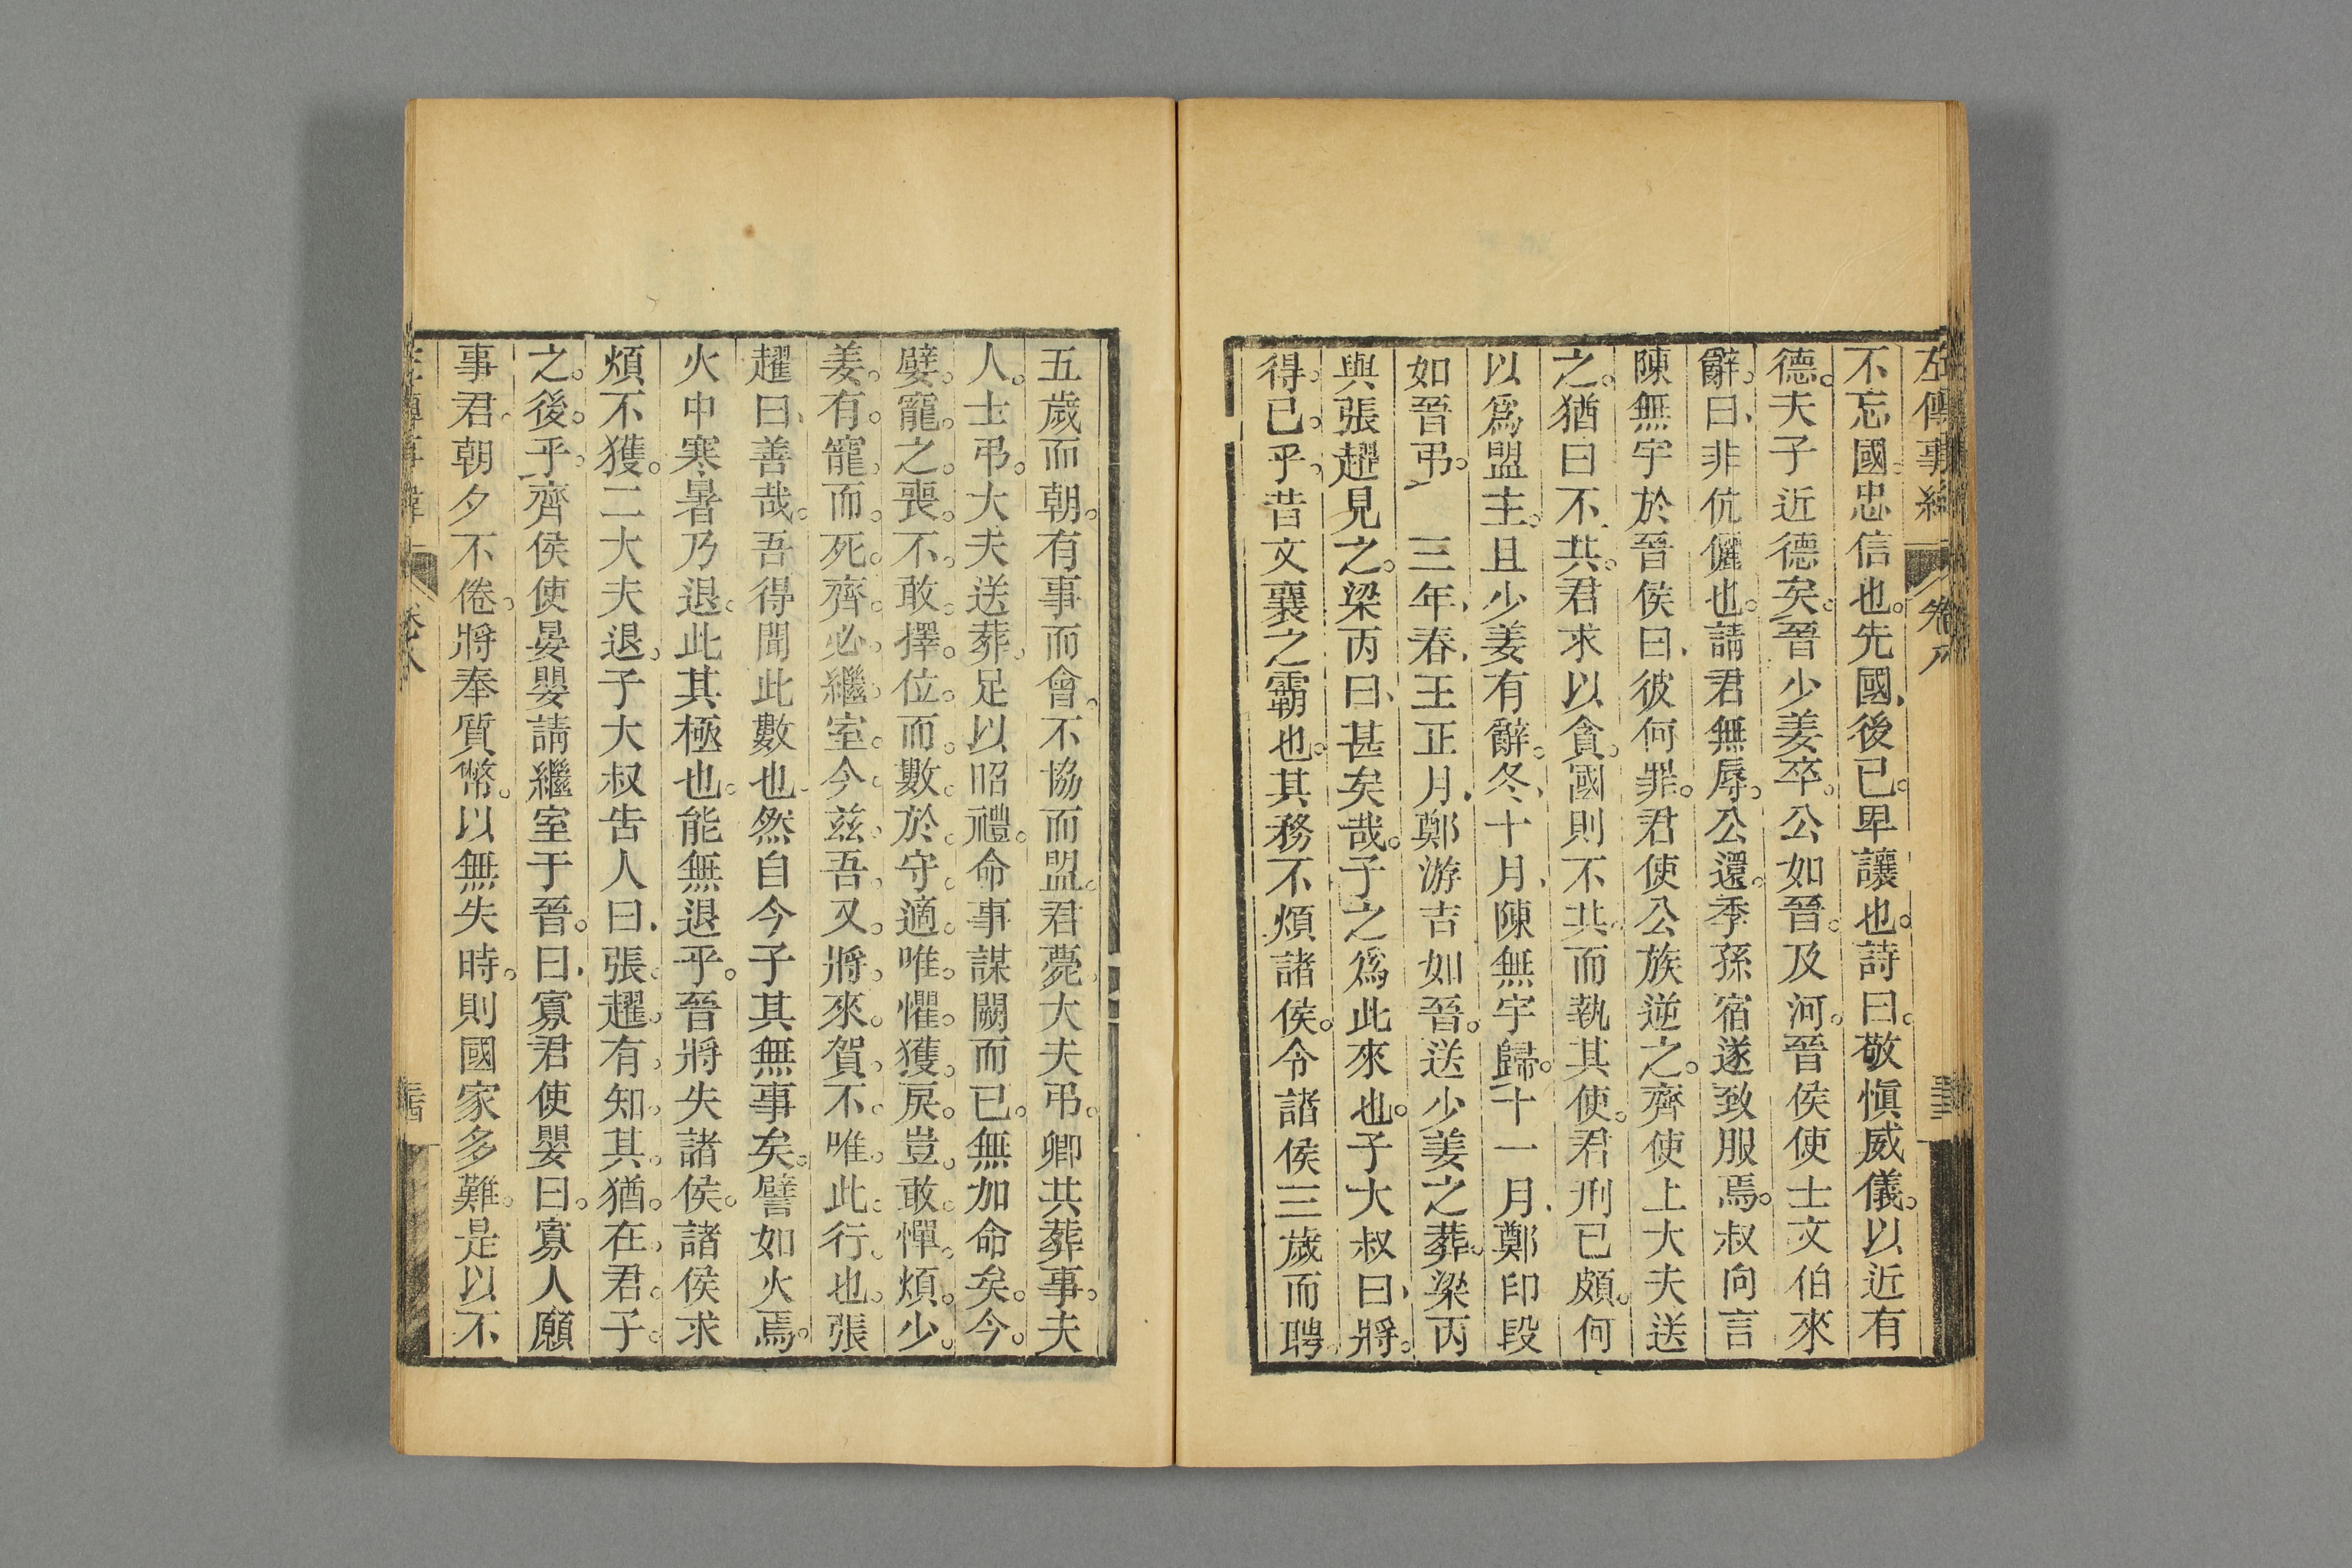 左傳事緯 卷八
不忘國。忠信也。先國、後已。卑讓也。詩曰。敬愼威儀。以近有
德。夫子近德矣。晉少姜卒。公如晉。及河。晉侯使士文伯來
辭。曰、非伉儷也。請君無辱。公還。季孫宿遂致服焉。叔向言
陳無宇於晉侯曰、彼何罪。君使公族逆之。齊使上大夫送
之。猶曰不共。君求以貪。國則不共。而執其使。君刑已頗。何
以爲盟主。且少姜有辭。冬、十月、陳無宇歸。十一月、鄭印段
如晉弔。 三年、春、王正月、鄭游吉如晉。送少姜之葬。梁丙
與張趯見之。梁丙曰、甚矣哉。子之爲此來也。子大叔曰、將。
得。已。乎。昔文襄之霸也。其務不煩諸侯。令諸侯三歲而聘。
五歲而朝。有事而會。不協而盟。君薨。大夫弔。卿共葬事。夫
人。士弔。大夫送葬。足以昭禮。命事謀闕而已。無加命矣。今。
嬖。寵。之。喪。不。敢。擇。位。而。數。於。守。適。唯。懼。獲。戾。豈。敢。憚。煩。少。
姜。有。寵。而。死。齊。必。繼。室。今。兹。吾。又。將。來。賀。不。唯。此。行。也。張
趯曰、善哉。吾得聞此數也。然自今子其無事矣。譬如火焉。
火中寒暑乃退。此其極也。能無退乎。晉將失諸侯。諸侯求
煩不獲。二大夫退。子大叔告人曰、張。趯。有。知。其。猶。在。君。子。
之。後。乎。齊侯使晏嬰請繼室于晉。曰、寡君使嬰曰。寡人願
事君。朝夕不倦。將奉質幣。以無失時。則國家多難。是以不
卷八